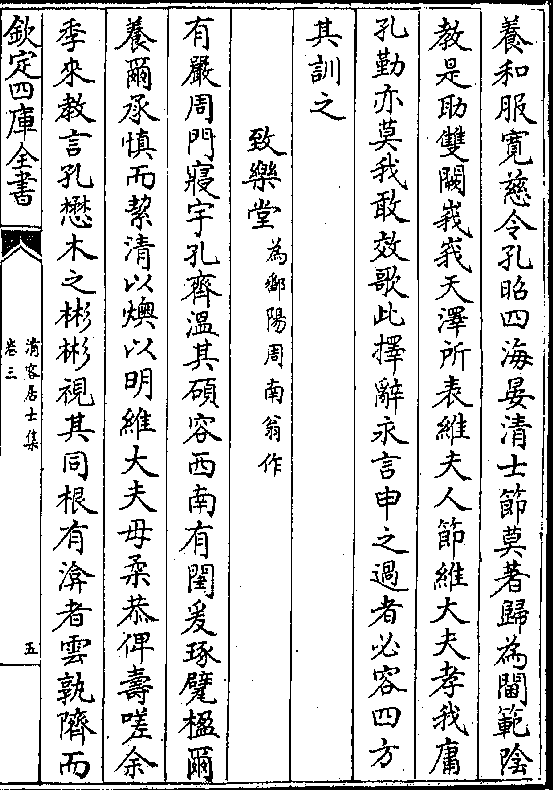 養和服寬慈令孔昭四海晏清士節莫著歸為閫範陰
教是助雙闕峩峩天澤所表維夫人節維大夫孝我庸
孔勤亦莫我敢效歌此擇辭永言申之過者必容四方
其訓之
致樂堂為鄱陽周南翁作
有嚴周門寢宇孔齊溫其碩容西南有閨爰琢甓楹爾
養爾承慎而絜清以燠以明維大夫母柔恭俾壽嗟余
季來教言孔懋木之彬彬視其同根有渰者雲孰隮而
欽定四庫全書
清容居士集
卷三
五